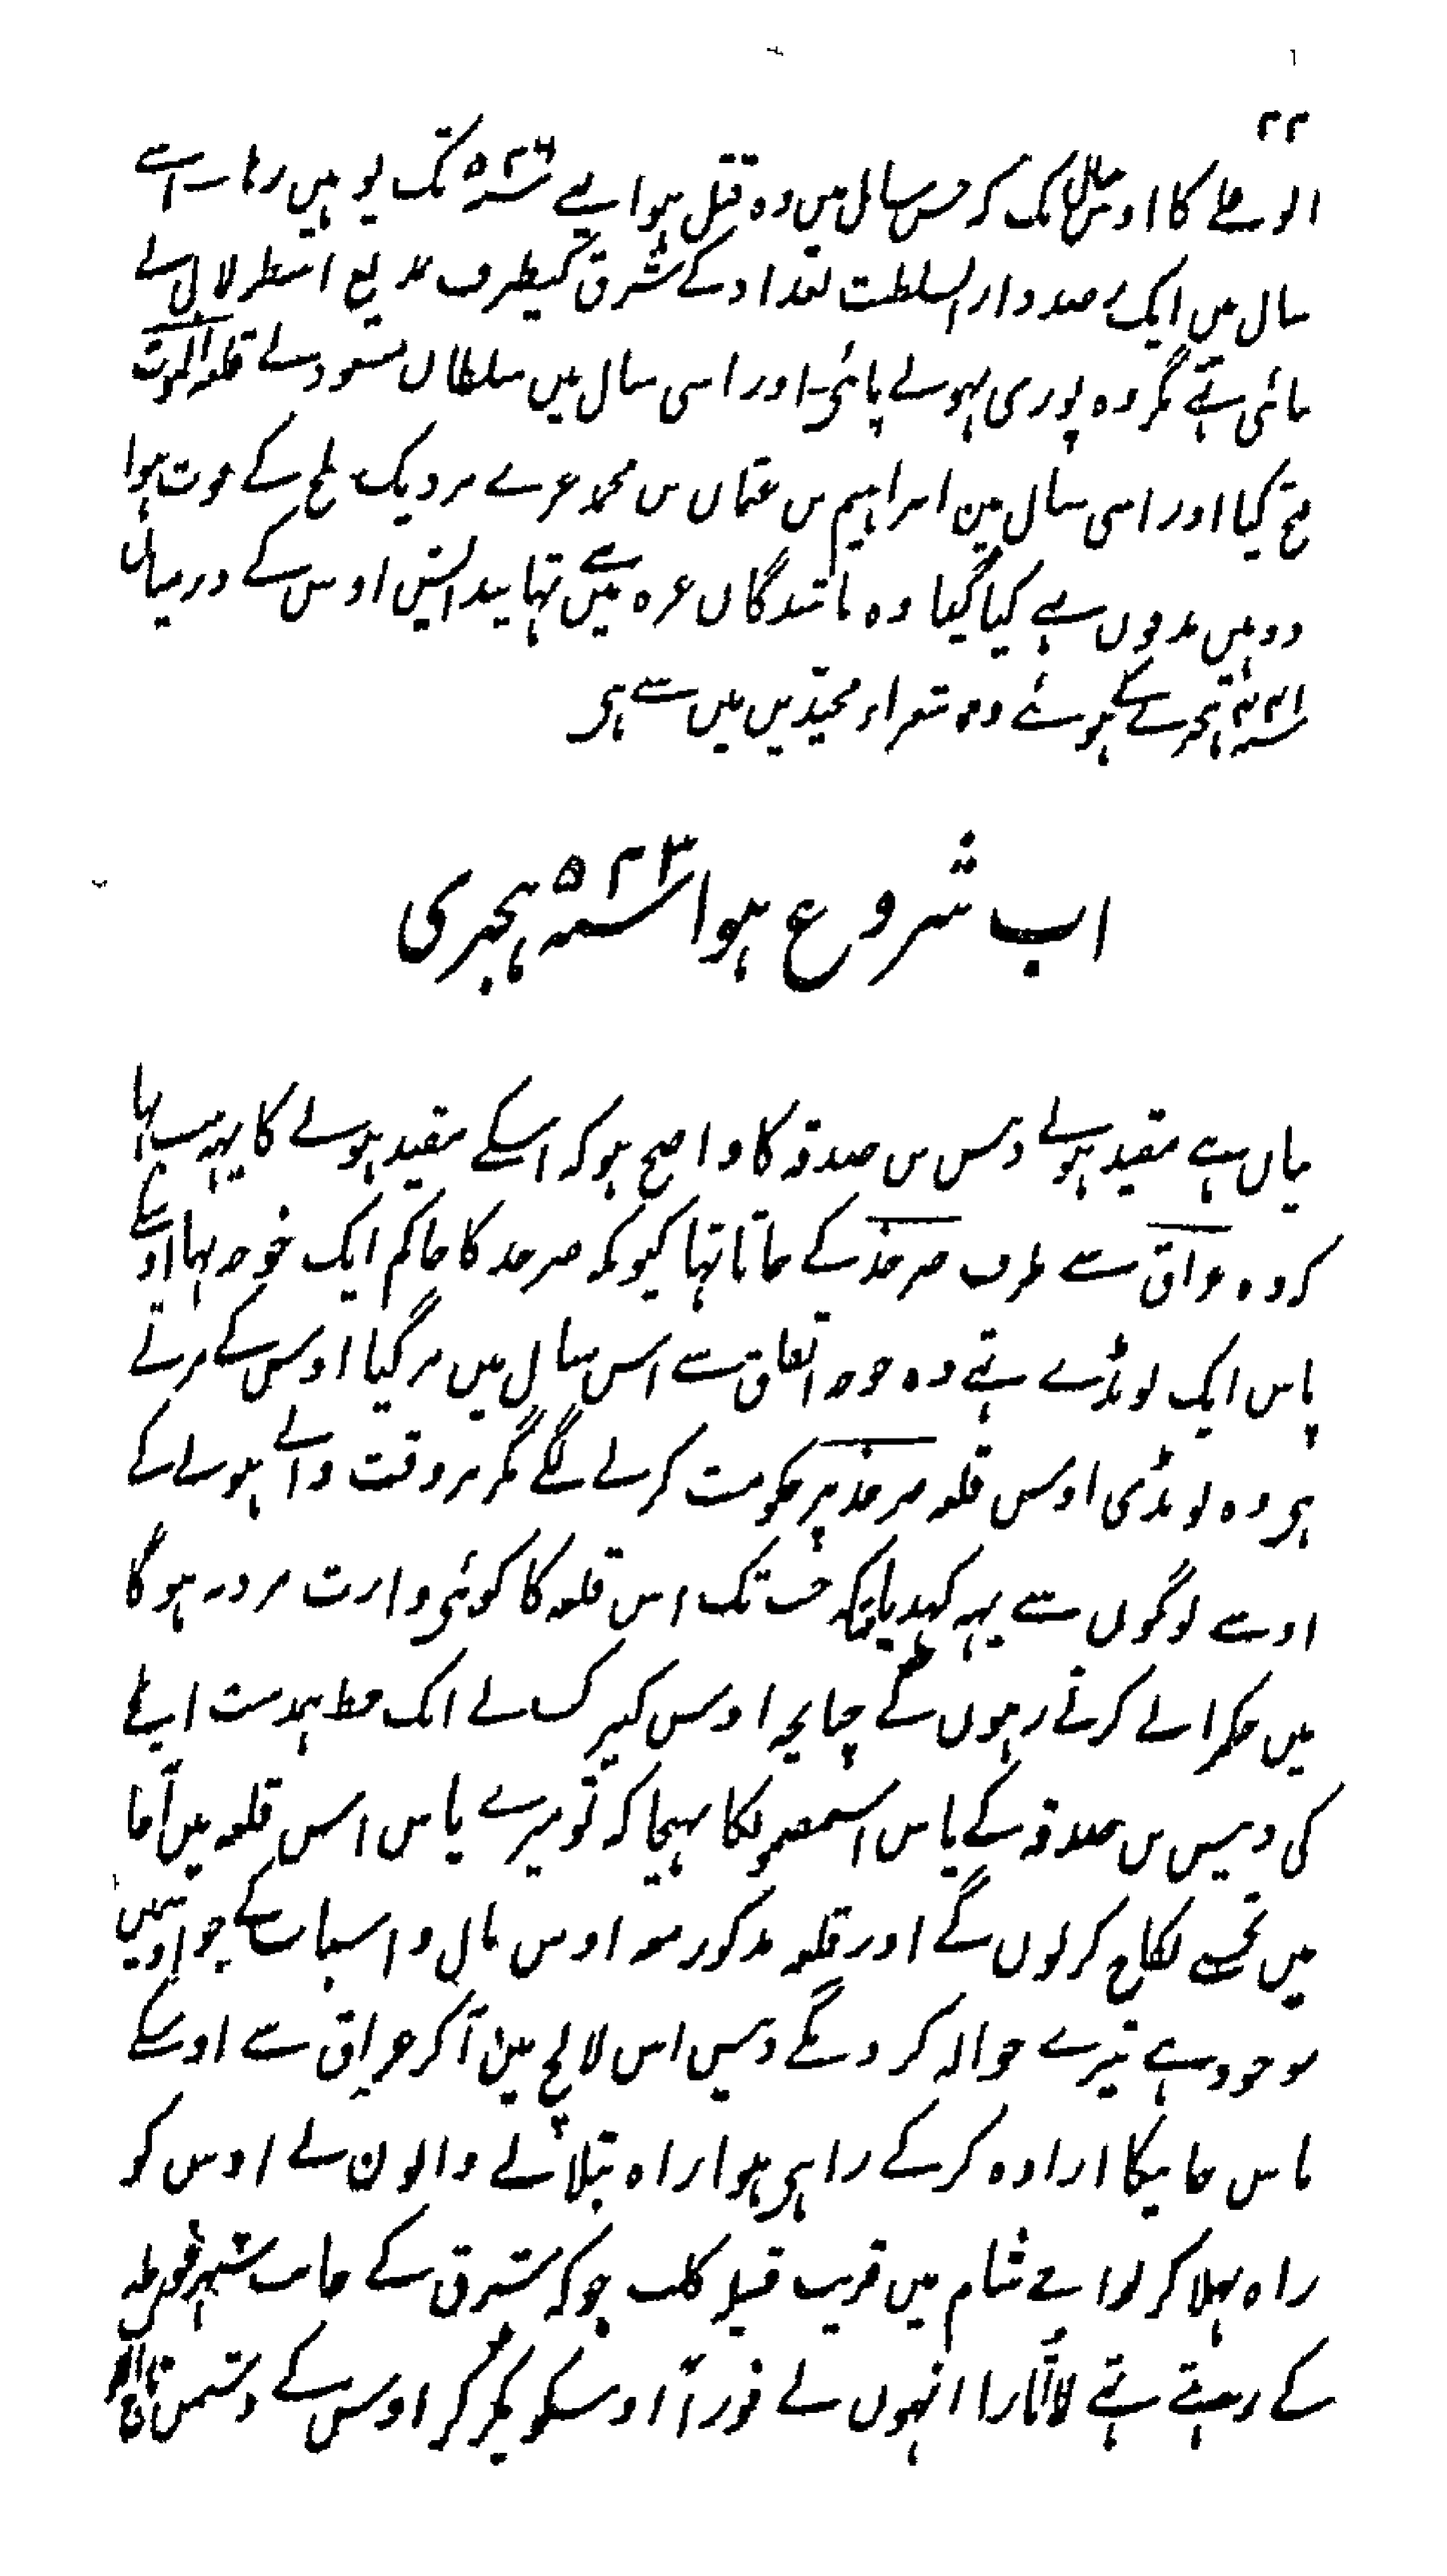 ۲۲
ابو علی کا اوس سال تک کہ جس سال میں وہ قتل ہوا ہے ۵۲۶ تک یوہیں رہا۔ اسی
سال میں ایک رصد دار السلطنت بغداد کے شرق کیطرف بدیع اسطرلابی نے
بنائی تہی مگر وہ پوری نہونے پائی۔ اور اسی سال میں سلطان مسعود نے قلعہ الموت
فتح کیا اور اسی سال مین ابراہیم بن عثمان بن محمد غزے نزدیک بلخ کے فوت ہوا
وہیں مدفون ہے کیا گیا وہ باشندگان غزہ میں سے تہا پیدایش اوس کے درمیان
سنہ ۴۴۱ ہجرے کے ہوئے وہ شعراء مجیدین میں سے ہی
اب شروع ہوا سنہ ۵۲۳ ہجری
بیاں ہے مقید ہونے دبیس بن صدقہ کا واضح ہو کہ اسکے مقید ہونے کا یہہ سبب تہا
کہ وہ عراق سے طرف صرخد کے جاتا تہا کیونکہ صرخد کا حاکم ایک خوجہ تہا اوسکے
پاس ایک لونڈے تہے وہ خوجہ اتفاق سے اس سال میں مر گیا اوس کے مرتے
ہی وہ لونڈی اوس قلعہ صرخد پر حکومت کرنے لگے مگر بروقت والے ہونے کے
اوسے لوگوں سے یہہ کہدیا تہا کہ جب تک اس قلعہ کا کوئی وارث مرد نہ ہوگا
میں حکمرانے کرتے رہوں گے چنانچہ اوس کنیزک نے ایک خط بدست ایلچے
کی دبیس بن صدقہ کے پاس اسمضمونکا بہیجا کہ تو میرے پاس اس قلعہ میں آجا
میں تجسے نکاح کرلوں گے اور قلعہ مذکور معہ اوس مال و اسباب کے جو اوسمیں
موجود ہے تیرے حوالہ کر دونگے دبیس اس لالچ مین آکر عراق سے اوسکے
پاس جانیکا ارادہ کرکے راہی ہوا راہ بتلانے والون نے اوس کو
راہ بہلا کر نواحے شام میں قریب قبیلہ کلب جو کہ شرق کے جانب شہر غوطہ
کے رہتے تہے لا اتارا انہوں نے فوراً اوسکو پکڑ کر اوس کے دشمن